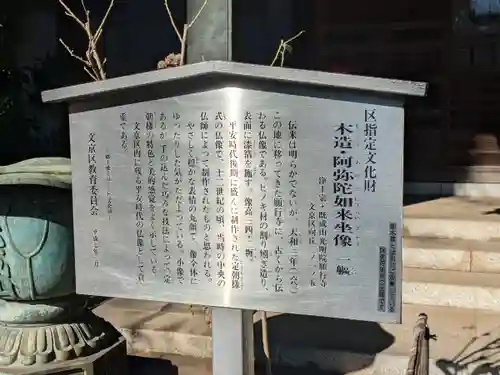 区指定文化財
木造・阿弥陀如来坐像 一軀
浄土宗・既成山光明院願行寺
文京区向丘二ノ一ノ五
伝来は明らかでないが、天和二年(一六八二)
この地に移ってきた願行寺に、古くから伝
わる仏像である。ヒノキ材の割り矧ぎ造り、
表面に漆箔を施す。像高二四・二糎。
平安時代後期に盛んに制作された定朝様
式の仏像で、十二世紀の頃、当時の中央の
仏師によって制作されたものと思われる。
やさしく穏かな表情の丸顔で、像全体に
ゆったりした気分がただよっている。小像で
あるが、手の込んだ巧みな技法によって、定
朝様の特色と美的感覚をよく示している。
文京区内に残る平安時代の仏像として貴
重である。
文京区教育委員会